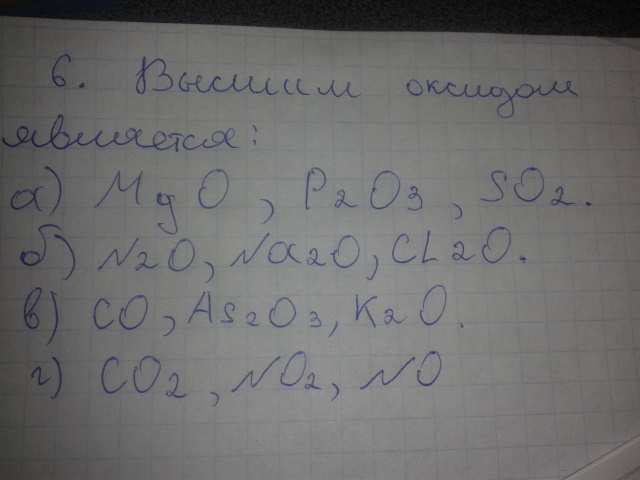 6. Высшим оксидом
является:
а) MgO, P2O3, SO2.
б) N2O, Na2O, CL2O.
в) CO, As2O3, K2O.
г) CO2, NO2, NO